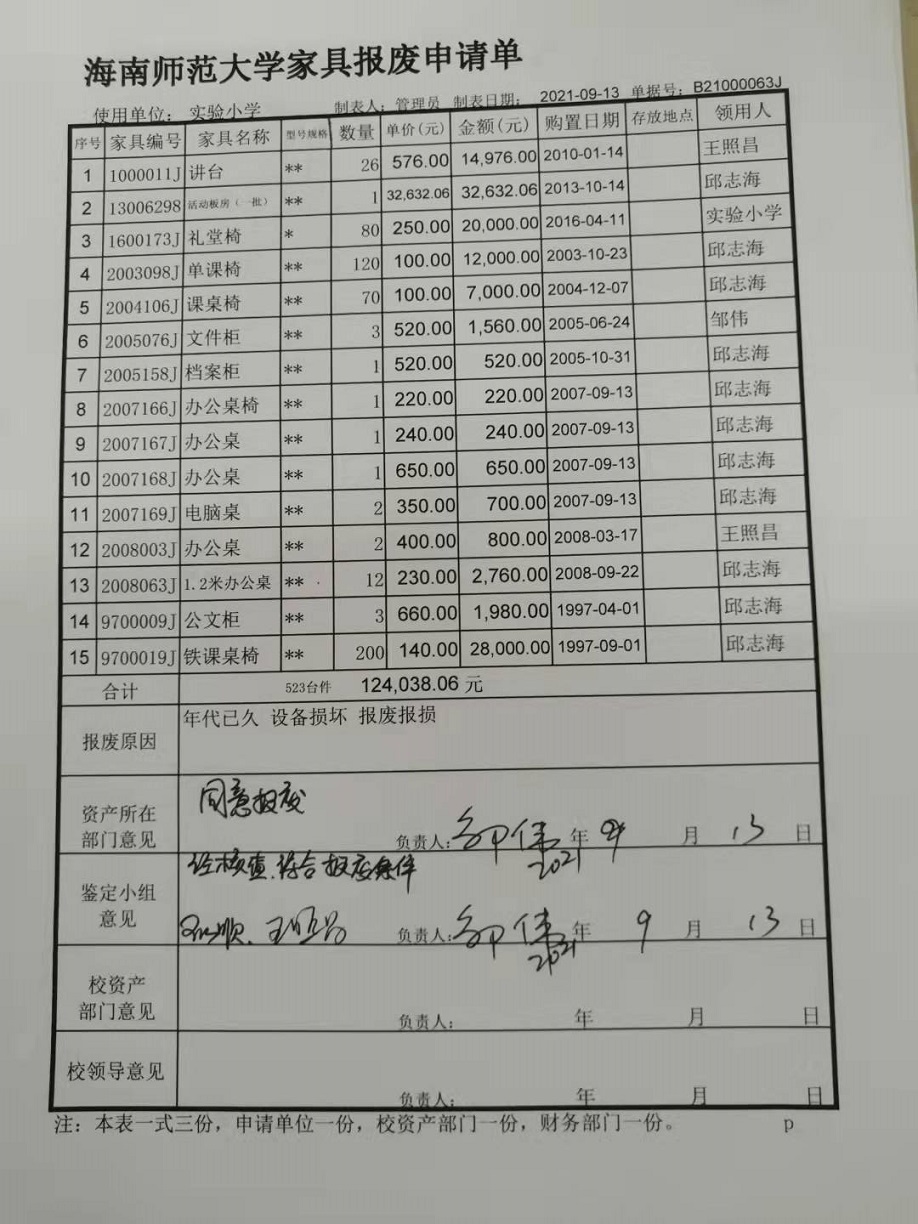 海南师范大学家具报废申请单
使用单位： 实验小学 制表人：管理员 制表日期： 2021-09-13 单据号：B21000063J
序号 家具编号 家具名称 型号规格 数量 单价(元) 金额(元) 购置日期 存放地点 领用人
1 1000011J 讲台 ** 26 576.00 14,976.00 2010-01-14 王照昌
2 13006298 活动板房（一批） ** 1 32,632.06 32,632.06 2013-10-14 邱志海
3 1600173J 礼堂椅 * 80 250.00 20,000.00 2016-04-11 实验小学
4 2003098J 单课椅 ** 120 100.00 12,000.00 2003-10-23 邱志海
5 2004106J 课桌椅 ** 70 100.00 7,000.00 2004-12-07 邱志海
6 2005076J 文件柜 ** 3 520.00 1,560.00 2005-06-24 邹伟
7 2005158J 档案柜 ** 1 520.00 520.00 2005-10-31 邱志海
8 2007166J 办公桌椅 ** 1 220.00 220.00 2007-09-13 邱志海
9 2007167J 办公桌 ** 1 240.00 240.00 2007-09-13 邱志海
10 2007168J 办公桌 ** 1 650.00 650.00 2007-09-13 邱志海
11 2007169J 电脑桌 ** 2 350.00 700.00 2007-09-13 邱志海
12 2008003J 办公桌 ** 2 400.00 800.00 2008-03-17 王照昌
13 2008063J 1.2米办公桌 ** 12 230.00 2,760.00 2008-09-22 邱志海
14 9700009J 公文柜 ** 3 660.00 1,980.00 1997-04-01 邱志海
15 9700019J 铁课桌椅 ** 200 140.00 28,000.00 1997-09-01 邱志海
合计 523台件 124,038.06 元
报废原因 年代已久 设备损坏 报废报损
同意报废
资产所在
部门意见 负责人： 邹伟 2021 年 9 月 13 日
经核查，符合报废条件
鉴定小组
意见 负责人： 邹伟 2021 年 9 月 13 日
校资产
部门意见 负责人： 年 月 日
校领导意见 负责人： 年 月 日
注：本表一式三份，申请单位一份，校资产部门一份，财务部门一份。 p